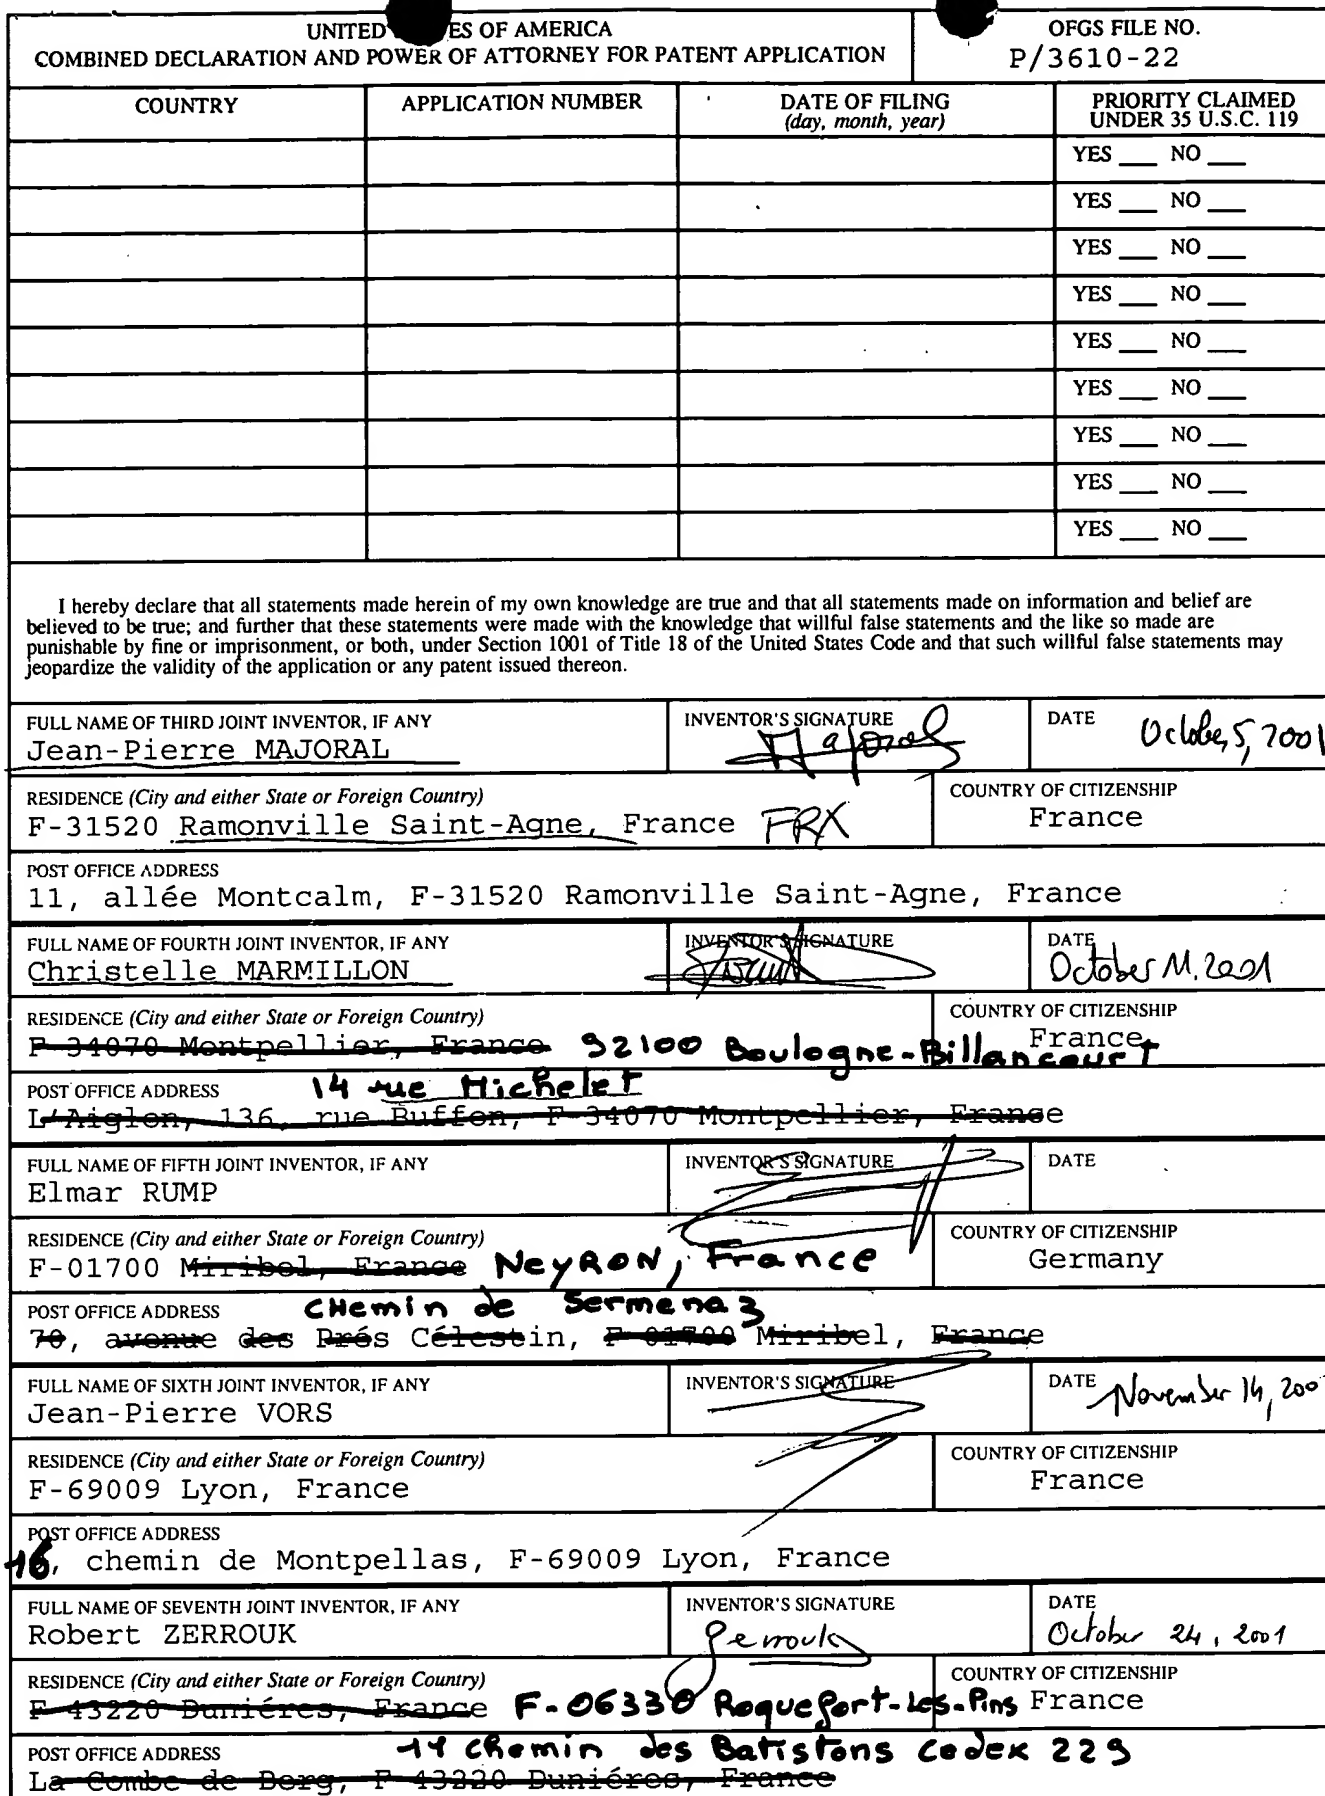 UNITED ES OF AMERICA
COMBINED DECLARATION AND POWER OF ATTORNEY FOR PATENT APPLICATION
OFGS FILE NO.
P/3610-22
COUNTRY
APPLICATION NUMBER
DATE OF FILING
(day, month, year)
PRIORITY CLAIMED
UNDER 35 U.S.C. 119
YES ___ NO ___
YES ___ NO ___
YES ___ NO ___
YES ___ NO ___
YES ___ NO ___
YES ___ NO ___
YES ___ NO ___
YES ___ NO ___
YES ___ NO ___
I hereby declare that all statements made herein of my own knowledge are true and that all statements made on information and belief are
believed to be true; and further that these statements were made with the knowledge that willful false statements and the like so made are
punishable by fine or imprisonment, or both, under Section 1001 of Title 18 of the United States Code and that such willful false statements may
jeopardize the validity of the application or any patent issued thereon.
FULL NAME OF THIRD JOINT INVENTOR, IF ANY
Jean-Pierre MAJORAL
INVENTOR'S SIGNATURE
Majoral
DATE
October 5, 2001
RESIDENCE (City and either State or Foreign Country)
F-31520 Ramonville Saint-Agne, France FRX
COUNTRY OF CITIZENSHIP
France
POST OFFICE ADDRESS
11, allée Montcalm, F-31520 Ramonville Saint-Agne, France
FULL NAME OF FOURTH JOINT INVENTOR, IF ANY
Christelle MARMILLON
INVENTOR'S SIGNATURE
DATE
October 11. 2001
RESIDENCE (City and either State or Foreign Country)
F-34070 Montpellier, France 92100 Boulogne-Billancourt
COUNTRY OF CITIZENSHIP
France
POST OFFICE ADDRESS
14 rue Michelet
L'Aiglon, 136, rue Buffon, F-34070 Montpellier, France
FULL NAME OF FIFTH JOINT INVENTOR, IF ANY
Elmar RUMP
INVENTOR'S SIGNATURE
DATE
RESIDENCE (City and either State or Foreign Country)
F-01700 Miribel, France NeyRON, France
COUNTRY OF CITIZENSHIP
Germany
POST OFFICE ADDRESS
CHemin de Sermenaz
70, avenue des Prés Célestin, F-01700 Miribel, France
FULL NAME OF SIXTH JOINT INVENTOR, IF ANY
Jean-Pierre VORS
INVENTOR'S SIGNATURE
DATE
November 14, 200
RESIDENCE (City and either State or Foreign Country)
F-69009 Lyon, France
COUNTRY OF CITIZENSHIP
France
POST OFFICE ADDRESS
16, chemin de Montpellas, F-69009 Lyon, France
FULL NAME OF SEVENTH JOINT INVENTOR, IF ANY
Robert ZERROUK
INVENTOR'S SIGNATURE
Zerrouk
DATE
October 24, 2001
RESIDENCE (City and either State or Foreign Country)
F-43220 Duniéres, France F-06330 Roquefort-Les-Pins
COUNTRY OF CITIZENSHIP
France
POST OFFICE ADDRESS
chemin des Batistons Cedex 229
La Combe de Berg, F-43220 Duniéres, France